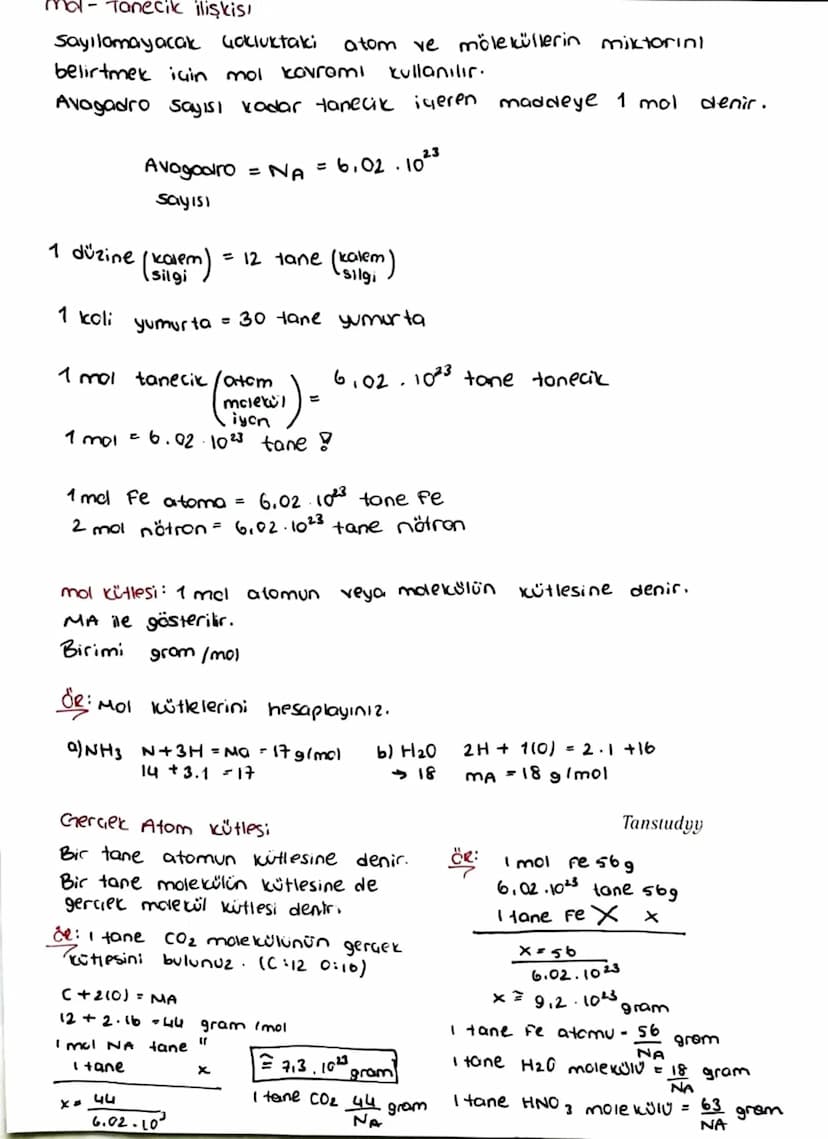 mol - Tanecik ilişkisi
Sayılamayacak çokluktaki atom ve möleküllerin miktarını
belirtmek için mol kavramı kullanılır.
Avogadro sayısı kadar tanecik içeren maddeye 1 mol denir.
Avogadro = NA = 6,02 . 10²³
sayısı
1 düzine (kalem silgi) = 12 tane (kalem silgi)
1 koli yumurta = 30 tane yumurta
1 mol tanecik (atom molekül iyon) = 6,02 . 10²³ tane tanecik
1 mol = 6.02 . 10²³ tane !
1 mol Fe atomo = 6,02 . 10²³ tane Fe
2 mol nötron = 6,02 . 10²³ tane nötron
mol kütlesi: 1 mol atomun veya molekülün kütlesine denir.
MA ile gösterilir.
Birimi gram/mol
Ör: Mol kütlelerini hesaplayınız.
a) NH₃ N + 3H = Ma = 17 g/mol
14 + 3.1 = 17
b) H₂O 2H + 1(O) = 2.1 + 16
→ 18 mA = 18 g/mol
Gerçek Atom Kütlesi
Bir tane atomun kütlesine denir.
Bir tane molekülün kütlesine de
gerçek molekül kütlesi denir.
Ör: 1 tane CO₂ molekülünün gerçek
kütlesini bulunuz. (C:12 O:16)
C + 2(O) = MA
12 + 2.16 = 44 gram/mol
1 mol NA tane "
1 tane x
x = 44 / 6.02.10³
≅ 7,3 . 10²³ gram
1 tane CO₂ 44/NA gram
Tanstudyy
Ör: 1 mol Fe 56g
6,02.10²³ tane 56g
1 tane Fe X x
x = 56 / 6.02.10²³
x ≅ 9,2 . 10²³ gram
1 tane Fe atomu = 56/NA gram
1 tane H₂O molekülü = 18/NA gram
1 tane HNO₃ molekülü = 63/NA gram